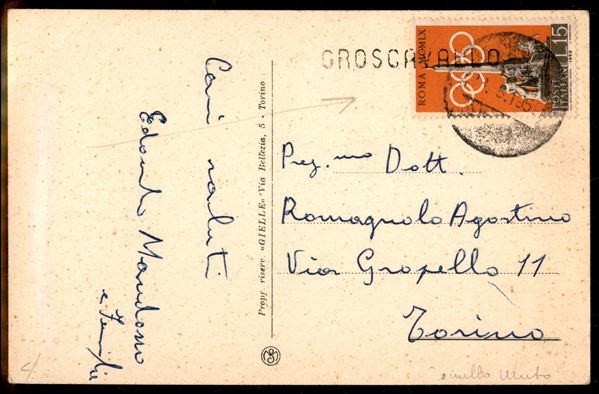 Cari saluti
Edoardo
e Famiglia
Propr. riserv. «GIELLE» Via Bellezia, 5 - Torino
GROSCAVALLO
ROMA MCMLX
L.15
Preg.mo Dott.
Romagnolo Agostino
Via Gropello 11
Torino